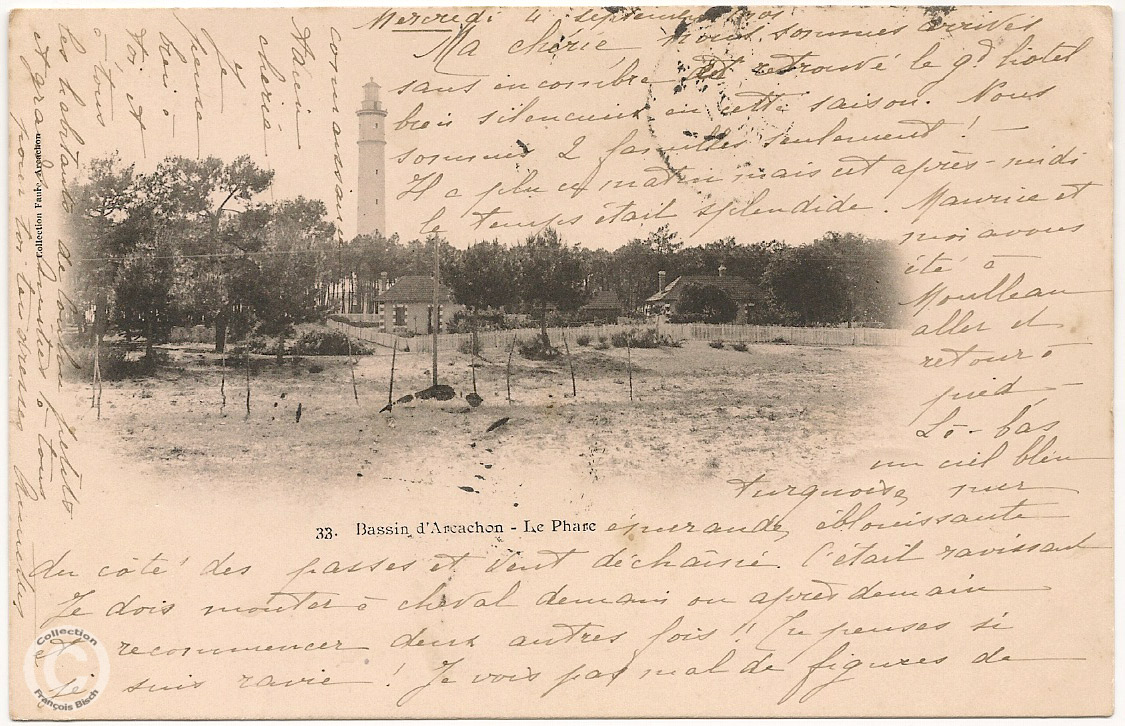 Mercredi 4 septembre
Ma chérie nous sommes arrivés
sans encombre et retrouvé le gd hotel
bien silencieux en cette saison. Nous
sommes 2 familles seulement !
Il a plu ce matin mais cet après-midi
le temps était splendide. Maurice et
moi avons
été à
Moulleau
aller et
retour à
pied
Là-bas
un ciel bleu
turquoise, mer
émeraude, éblouissante
du côté des passes et vent déchaîné. C'était ravissant
Je dois monter à cheval demain ou après demain
et recommencer deux autres fois ! Tu penses si
je suis ravie ! Je vois pas mal de figures de
connaissance
chérie
Je
pense
bien à
toi et
à tous
les habitants de
et à tous
pour toi tendresses
33. Bassin d'Arcachon - Le Phare
Collection Faure, Arcachon
Collection
C
François Bisch